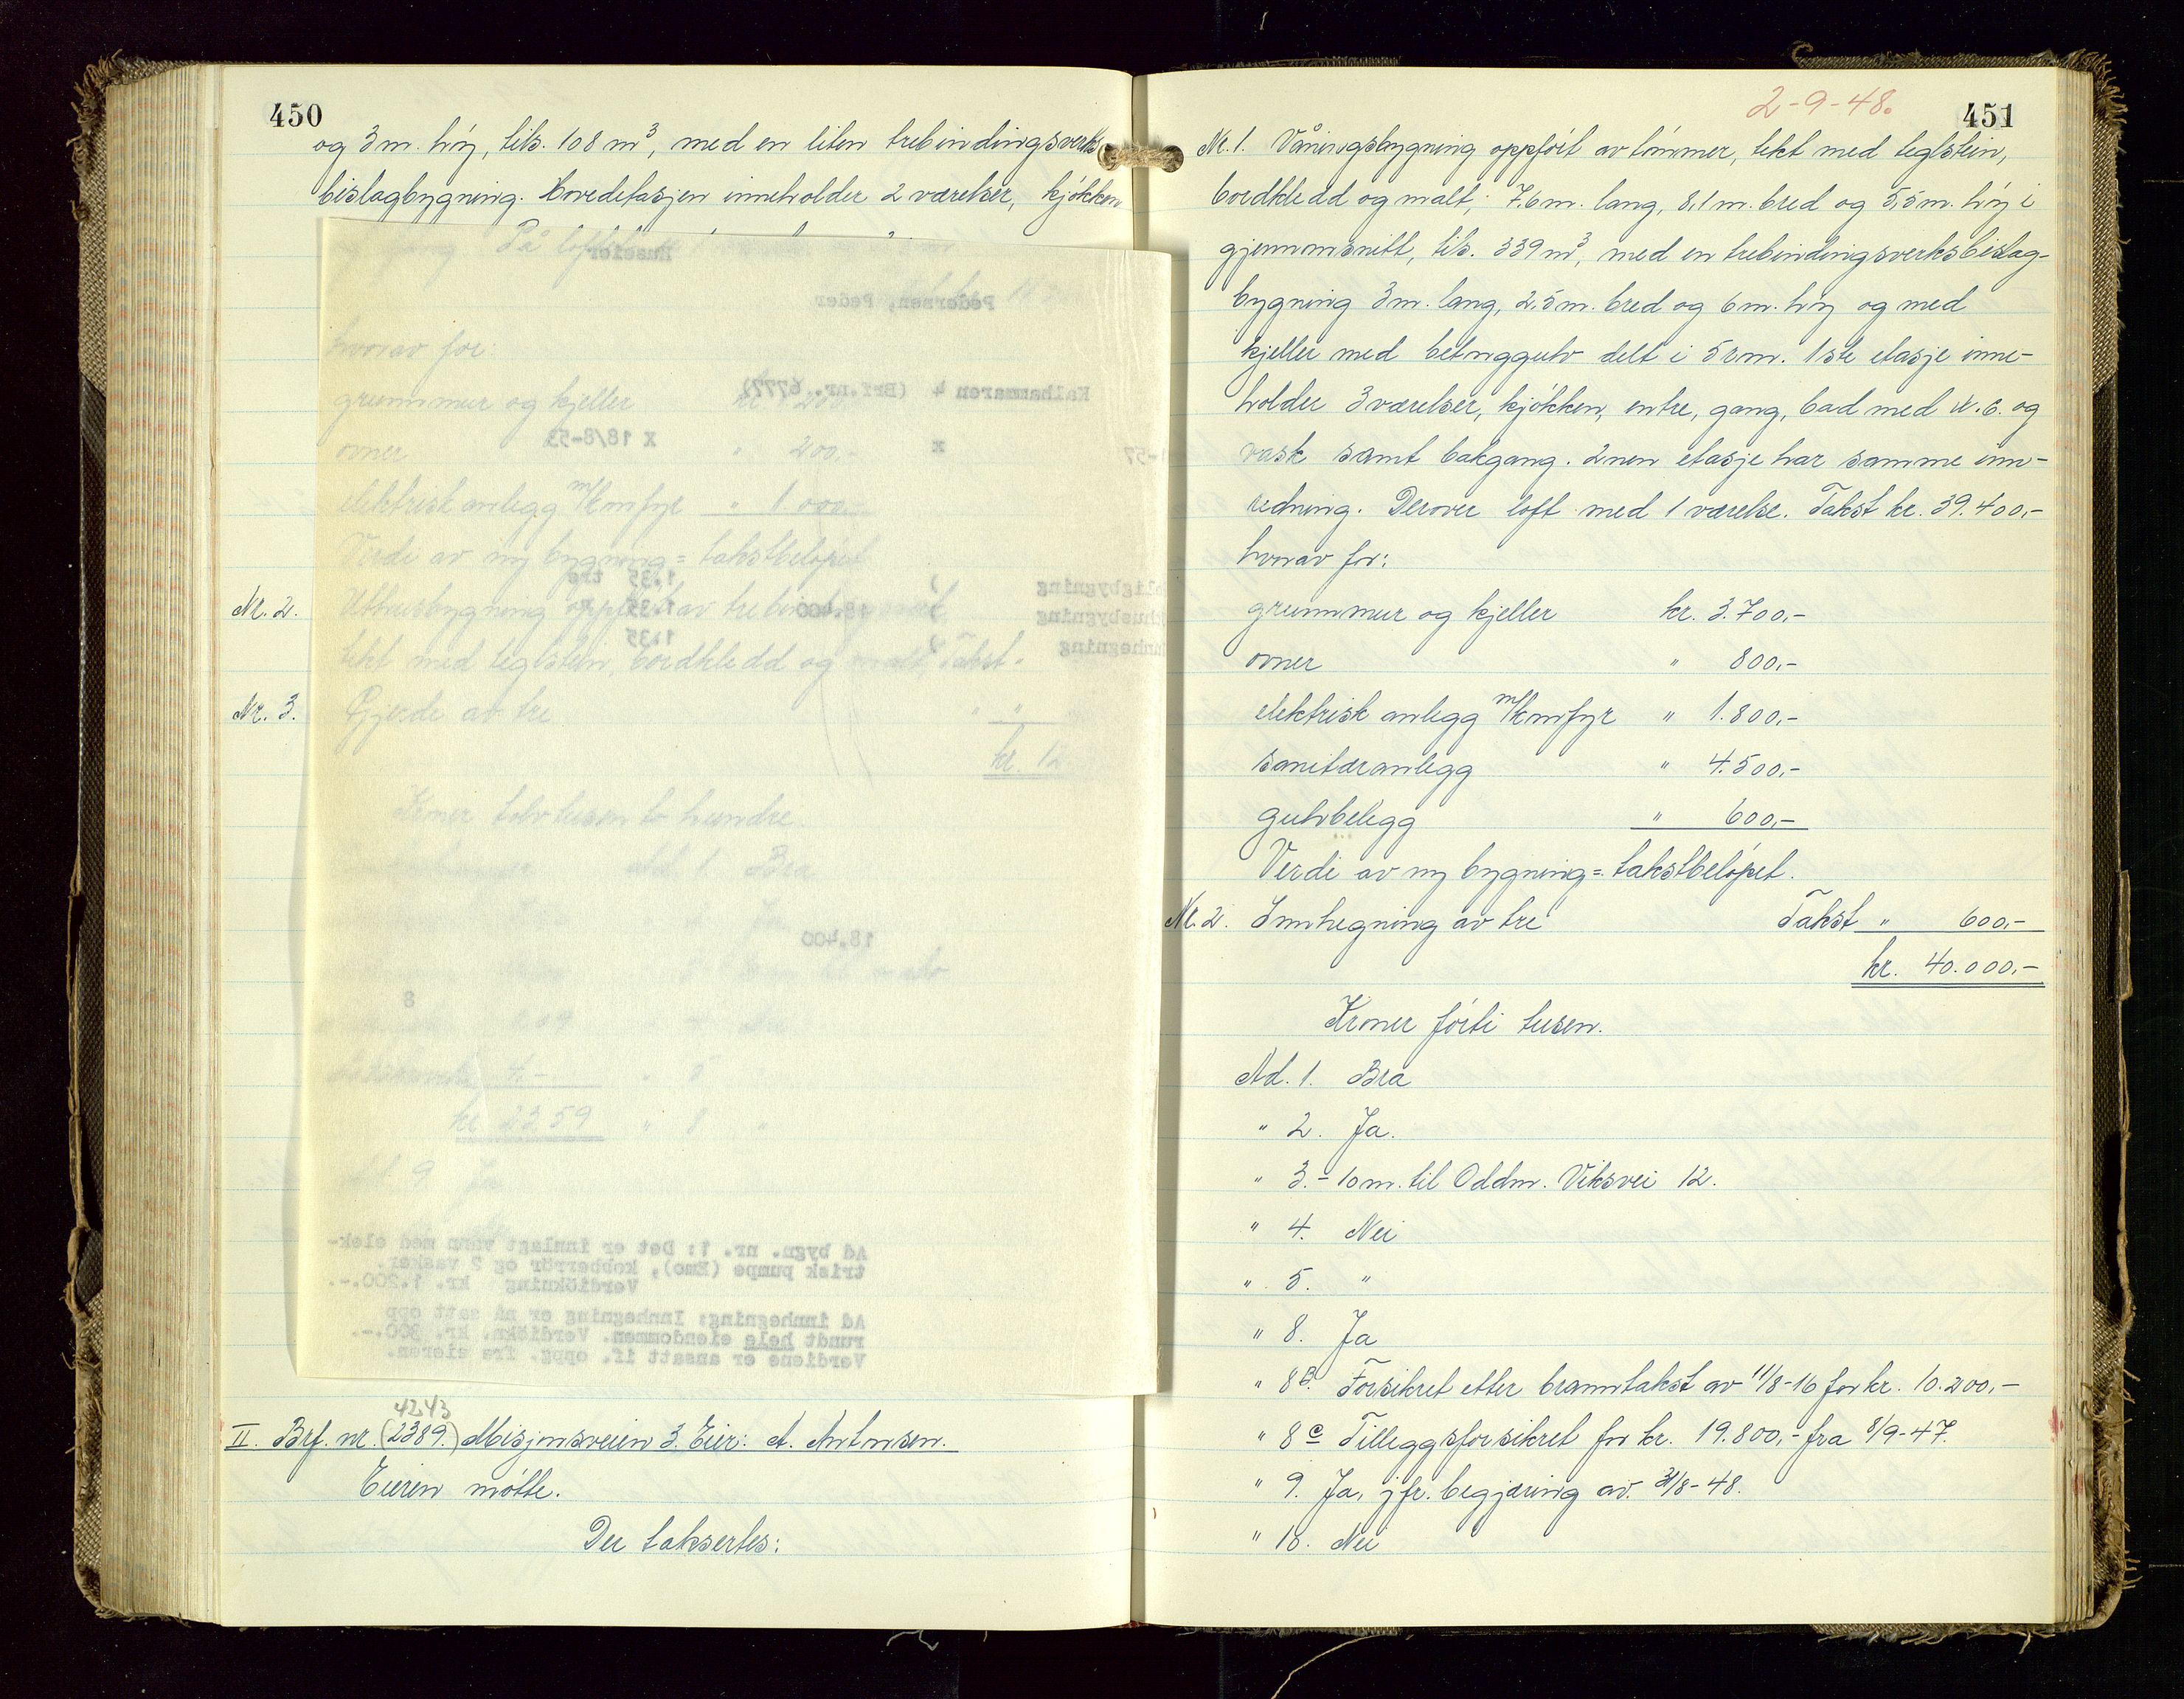 450
og 3 m. høy, tils. 108 m³, med en liten trebindingsverks
bislagbygning. Hovedetasjen inneholder 2 værelser, kjøkken
og gang. På loftet
hvorav for:
grunnmur og kjeller kr. 200,-
ovner " 200,-
elektrisk anlegg m/komfyr " 1.000,-
Verdi av ny bygning = takstbeløpet
Nr. 2. Uthusbygning oppført av trebindingsverk
tekt med teglstein, bordkledd og malt. Takst "
Nr. 3. Gjerde av tre " "
kr. 12
Kroner tolv tusen to hundre.
Ad. 1. Bra
kr. 2359 " 8 "
Ad. 9 Ja
Huseier
Pedersen, Peder
Kalhammaren 4 (Brf.nr. 6777)
x x 18/8-53
1.35 tre
1.35 18.400
1.35
18.400
8
Ad bygn. nr. 1: Det er innlagt vann med elek-
trisk pumpe (Emo), kobberrör og 2 vasker.
Verdiökning kr. 1.200.-.
Ad innhegning: Innhegning er nå satt opp
rundt hele eiendommen. Verdiökn. kr. 300.-.
Verdiene er ansatt if. oppg. fra eieren.
4243
II. Brf. nr. (2389.) Misjonsveien 3. Eier: A. Antonsen.
Eieren møtte.
Der taksertes:
2-9-48.
451
Nr. 1. Våningsbygning oppført av tømmer, tekt med teglstein,
bordkledd og malt, 7,6 m. lang, 8,1 m. bred og 5,5 m. høy i
gjennomsnitt, tils. 339 m³, med en trebindingsverksbislag-
bygning 3 m. lang, 2,5 m. bred og 6 m. høy og med
kjeller med betonggulv delt i 5 rom. 1ste etasje inne-
holder 3 værelser, kjøkken, entre, gang, bad med w.c. og
vask samt bakgang. 2nen etasje har samme inn-
redning. Derover loft med 1 værelse. Takst kr. 39.400,-
hvorav for:
grunnmur og kjeller kr. 3.700,-
ovner " 800,-
elektrisk anlegg m/komfyr " 1.800,-
sanitæranlegg " 4.500,-
gulvbelegg " 600,-
Verdi av ny bygning = takstbeløpet.
Nr. 2. Innhegning av tre Takst " 600,-
kr. 40.000,-
Kroner førti tusen.
Ad. 1. Bra
" 2. Ja.
" 3. - 10 m. til Oddm. Viksvei 12.
" 4. Nei
" 5. "
" 8. Ja
" 8 B. Forsikret etter branntakst av 11/8-16 for kr. 10.200,-
" 8 c Tilleggsforsikret for kr. 19.800,- fra 8/9-47.
" 9. Ja, jfr. begjæring av 31/8-48.
" 10. Nei